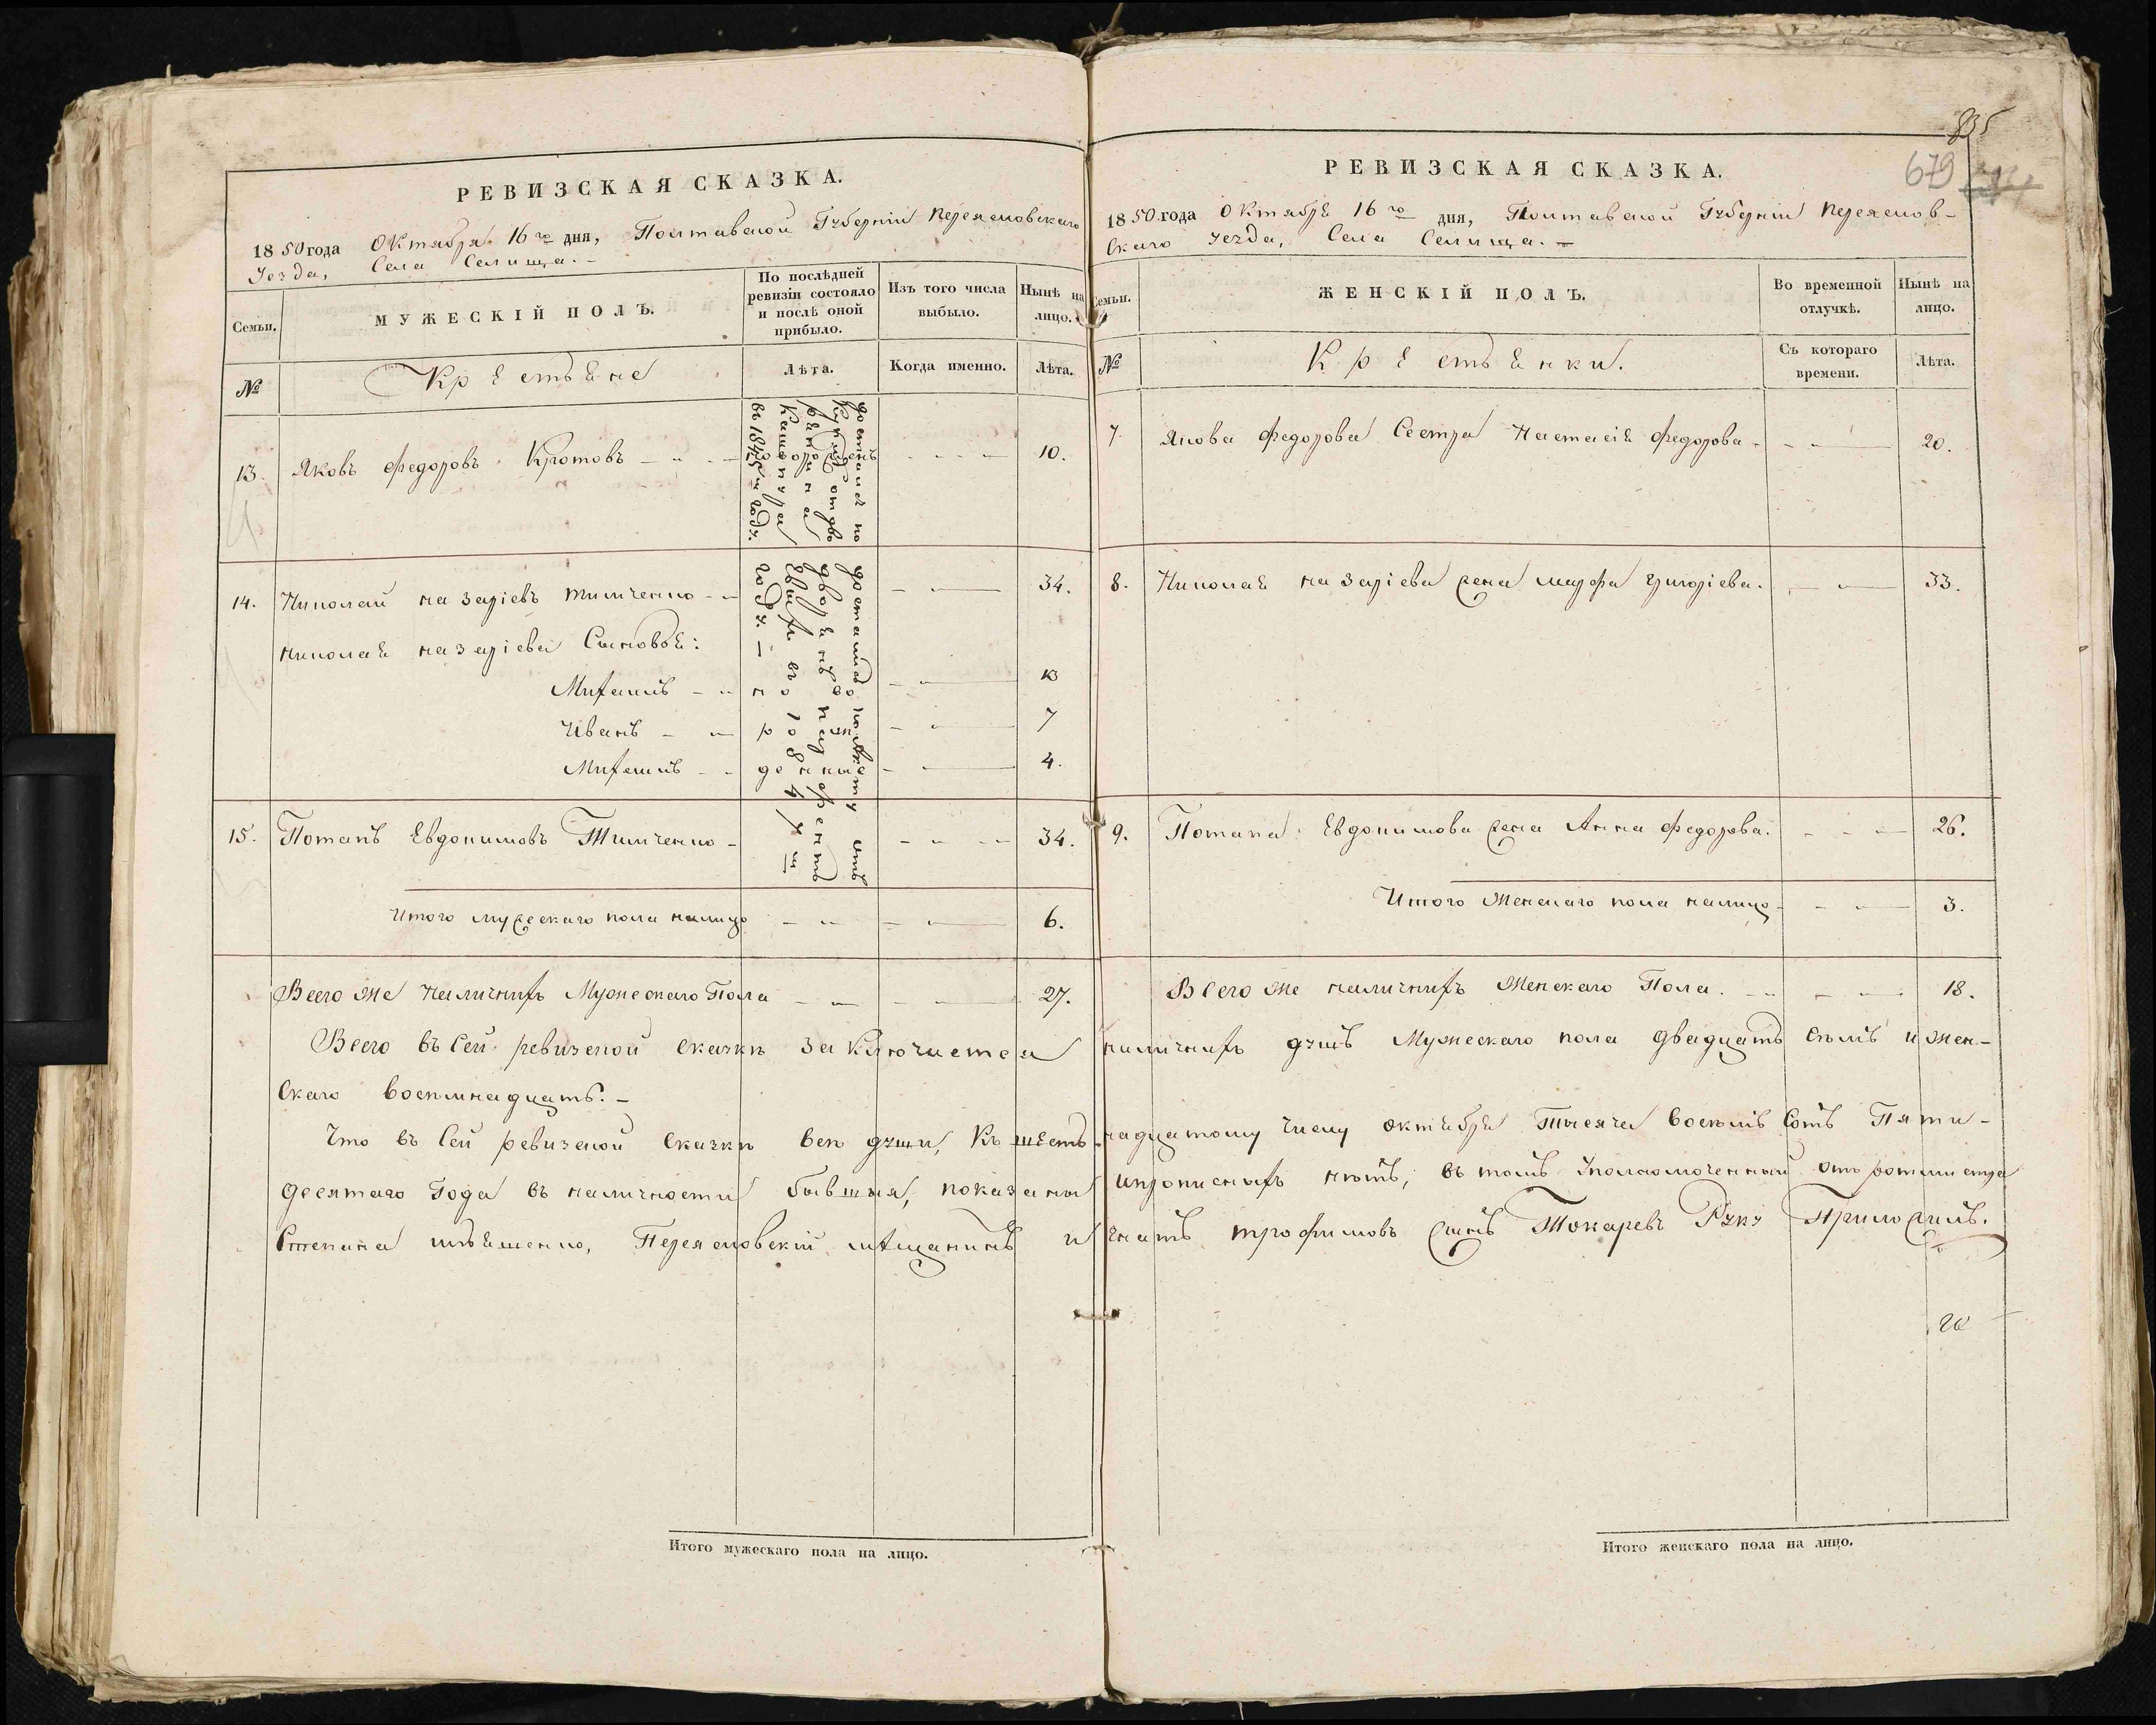 РЕВИЗСКАЯ СКАЗКА.
1850 года Октября 16го дня, Полтавской Губерніи Переясловскаго
Уезда, Села Селища. –
Семьи.
МУЖЕСКІЙ ПОЛЪ.
По послѣдней ревизіи состояло и послѣ оной прибыло.
Изъ того числа выбыло.
Нынѣ на лицо.
№
Крестьяне
Лѣта.
Когда именно.
Лѣта.
13. Яковъ Федоровъ Кротовъ новорожденъ 10.
достался по
Купчей отдво
рянина
въ 1845м году.
14. Николай Назаріевъ Тимченко 34.
Николая Назаріева Сыновья:
Михаилъ 13
Иванъ 7
Михаилъ 4.
новорожденные
достались по
дворянъ
году. –
15. Потапъ Евдокимовъ Тимченко 34.
Итого мужескаго пола налицо 6.
Всего же Наличныхъ Мужескаго Пола 27.
Всего въ Сей ревизской сказкѣ Заключается
скаго восемнадцать. –
Что въ Сей ревизской Сказкѣ всѣ души, Къ шест-
десятаго Года въ наличности бывшія, показаны
Степана Переясловскій мѣщанинъ И
Итого мужескаго пола на лицо.
835
679
РЕВИЗСКАЯ СКАЗКА.
1850 года Октября 16го дня, Полтавской Губерніи Переяслов-
скаго Уезда, Села Селища. –
Семьи.
ЖЕНСКІЙ ПОЛЪ.
Во временной отлучкѣ.
Нынѣ на лицо.
№
Крестьянки.
Съ котораго времени.
Лѣта.
7. Якова Федорова Сестра Настасія Федорова 20.
8. Николая Назаріева жена Марфа Григоріева. 33.
9. Потапа Евдокимова жена Анна Федорова. 26.
Итого Женскаго пола налицо 3.
Всего же наличныхъ Женскаго Пола. 18.
наличныхъ душъ Мужескаго пола двадцать семь и жен-
надцатому числу октября Тысяча восемь Сотъ Пяти-
ипрописныхъ нѣтъ, въ томъ Уполномоченный отъ ротмистра
гнатъ трофимовъ сынъ Токаревъ Руку Приложилъ.
Итого женскаго пола на лицо.